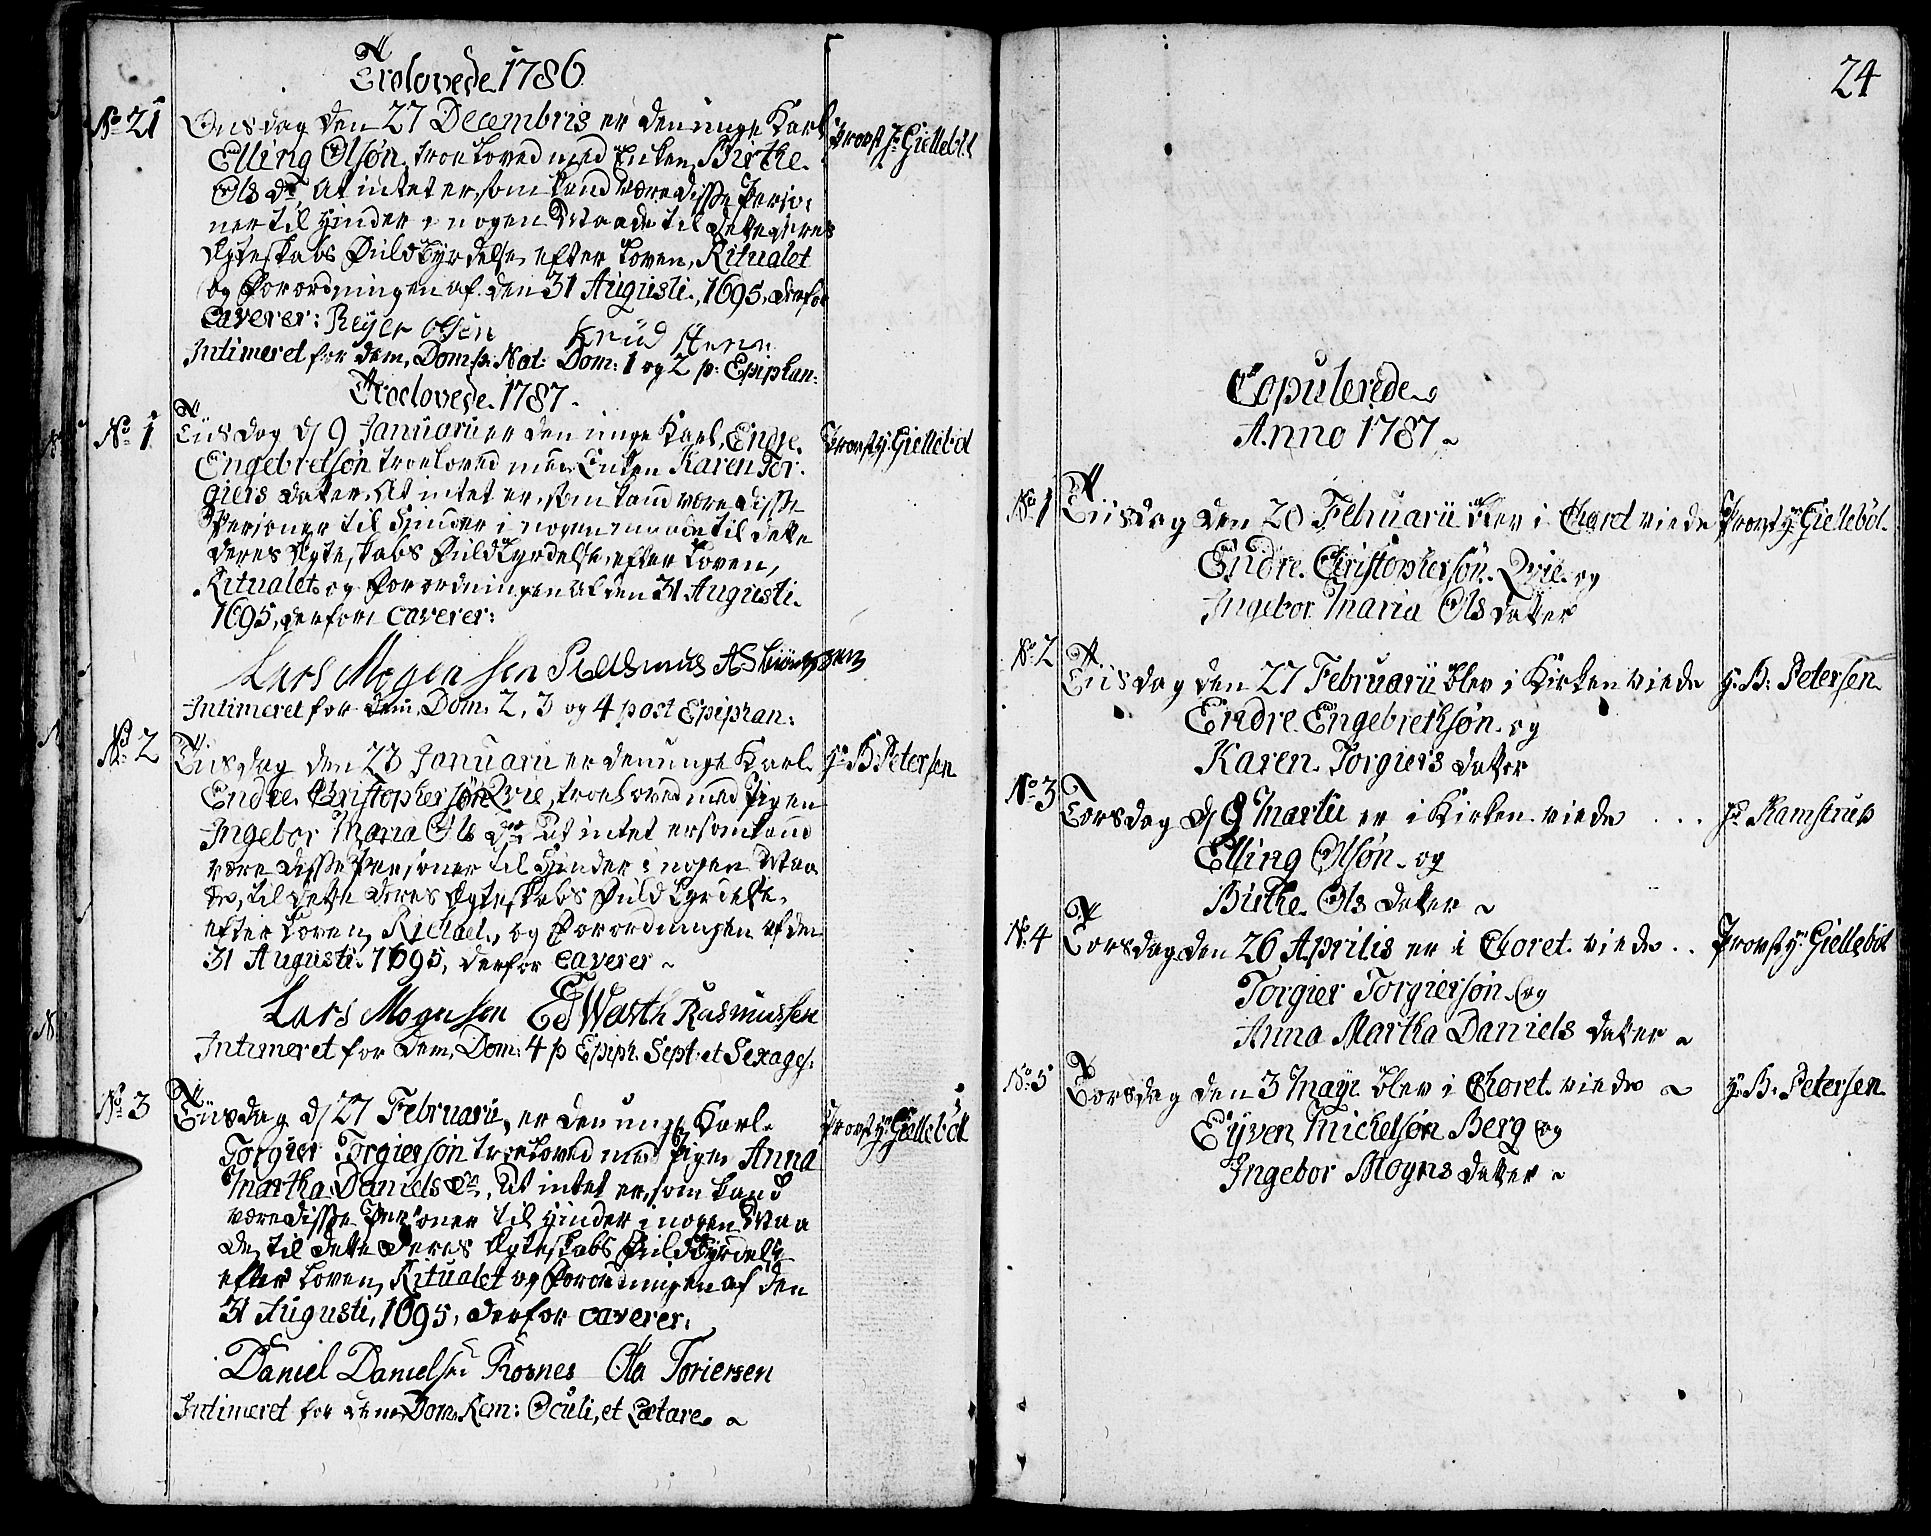 Trolovede 1786
No 21 Onsdag den 27 Decembris er den unge Karl Provst Hr Giellebøl
Elling Olsøn troeloved med Enken Birthe
Ols dr, At intet er, som kand være disse Perso-
ner til Hinder i nogen Maade til dette deres
Ægteskabs Fuldbyrdelse efter Loven, Ritualet
og Forordningen af den 31 Augusti, 1695, derfor
caverer: Reyer Olsen Knud
Intimeret for dem, Dom: p: Nat: Dom: 1 og 2 p: Epiphan:
Troelovede 1787.
No 1 Tiisdag d/ 9 Januarii er den unge Karl, Endre Provst Hr Giellebøl
Engebretsøn troeloved med Enken Karen Tor-
giers datter. At intet er, som kand være disse
Personer til Hinder i nogen maade til dette
deres Ægteskabs Fuldbyrdelse, efter Loven,
Ritualet og Forordningen af den 31 Augusti
1695, derfore caverer:
Lars Mogensen Rasmus Asbiørnsen
Intimeret for dem, Dom: 2, 3 og 4 post Epiphan:
No 2 Tiisdag den 23 Januarii er den unge Karl Hr H: Petersen
Endre Christophersøn Qvie, troeloved med Pigen
Ingebor Maria Ols dr At intet er som kand
være disse Personer til Hinder i nogen Maa
de, til dette deres Ægteskabs Fuldbyrdelse,
efter Loven, Ritual, og Forordningen af den
31 Augusti 1695, derfor caverer ~
Lars Mogensen Rasmussen
Intimeret for dem, Dom: 4 p Epiph. Sept: et Sexages.
No 3 Tiisdag d/ 27 Februarii, er den unge Karl Provst Hr Giellebøl
Torgier Torgiersøn troeloved med Pigen Anna
Martha Daniels dr, At intet er, som kand
være disse Personer til Hinder i nogen Maa
de, til dette deres Ægteskabs Fuldbyrdelse
efter Loven, Ritualet og Forordningen af den
31 Augusti, 1695, derfor caverer:
Daniel Danielsen Rosnes Ola Toriersen
Intimeret for dem, Dom: Rem: Oculi, et Lætare. ~
24
Copulerede
Anno 1787 ~
No 1 Tiisdag den 20 Februarii blev i Choret viede Provst Hr Giellebøl.
Endre Christophersøn Qvie og
Ingebor Maria Ols datter
No 2 Tiisdag den 27 Februarii blev i Kirken viede Hr H: Petersen
Endre Engebrethsøn og
Karen Torgiers datter
No 3 Torsdag d/ 8 Martii er i Kirken viede ... Hr Ramstrup
Elling Olsøn og
Birthe Ols datter ~
No 4 Torsdag den 26 Aprilis er i Choret viede .. Provst Hr Giellebøl
Torgier Torgiersøn og
Anna Martha Daniels datter ~
No 5 Torsdag den 3 Maji blev i Choret viede ~ Hr H: Petersen
Eyven Mickelsøn Berg og
Ingebor Mogns datter ~